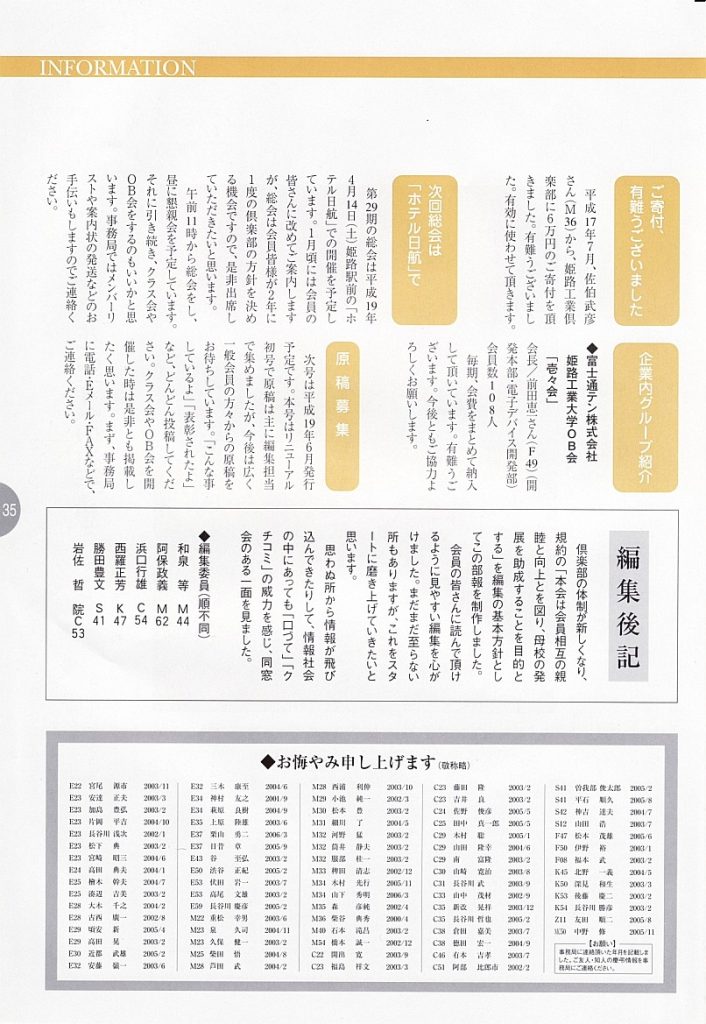 INFORMATION
ご寄付、
有難うございました
平成17年7月、佐伯武彦
さん(M36)から、姫路工業倶
楽部に6万円のご寄付を頂
きました。有難うございまし
た。有効に使わせて頂きます。
次回総会は
「ホテル日航」で
第29期の総会は平成19年
4月14日(土)姫路駅前の「ホ
テル日航」での開催を予定し
ています。1月頃には会員の
皆さんに改めてご案内します
が、総会は会員皆様が2年に
1度の倶楽部の方針を決め
る機会ですので、是非出席し
ていただきたいと思います。
午前11時から総会をし、
昼に懇親会を予定しています。
それに引き続き、クラス会や
OB会をするのもいいかと思
います。事務局ではメンバーリ
ストや案内状の発送などのお
手伝いもしますのでご連絡く
ださい。
企業内グループ紹介
◆富士通テン株式会社
姫路工業大学OB会
「壱々会」
会長/前田恵三さん(F49)(開
発本部・電子デバイス開発部)
会員数108人
毎期、会費をまとめて納入
して頂いています。有難うご
ざいます。今後ともご協力よ
ろしくお願いします。
原稿募集
次号は平成19年6月発行
予定です。本号はリニューアル
初号で原稿は主に編集担当
で集めましたが、今後は広く
一般会員の方々からの原稿を
お待ちしています。「こんな事
しているよ」「表彰されたよ」
など、どんどん投稿してくだ
さい。クラス会やOB会を開
催した時は是非とも掲載し
たく思います。まず、事務局
に電話・Eメール・FAXなどで、
ご連絡ください。
35
編集後記
倶楽部の体制が新しくなり、
規約の「本会は会員相互の親
睦と向上とを図り、母校の発
展を助成することを目的と
する」を編集の基本方針とし
てこの部報を制作しました。
会員の皆さんに読んで頂け
るように見やすい編集を心が
けました。まだまだ至らない
所もありますが、これをスタ
ートに磨き上げていきたいと
思います。
思わぬ所から情報が飛び
込んできたりして、情報社会
の中にあっても「口づて」「ク
チコミ」の威力を感じ、同窓
会のある一面を見ました。
◆編集委員(順不同)
和泉 等 M44
阿保政義 M62
浜口行雄 C54
西羅正芳 K47
勝田豊文 S41
岩佐 哲 院C53
◆お悔やみ申し上げます(敬称略)
E22 宮尾 源市 2003/11
E23 安達 正夫 2003/3
E23 加島 豊弘 2003/2
E23 片岡 平吉 2004/10
E23 長谷川 浅次 2002/1
E23 松下 典 2003/2
E23 宮崎 昭三 2004/6
E24 高田 典夫 2004/1
E25 檜木 幹夫 2004/7
E25 湊辺 吉美 2003/2
E28 大木 千之 2004/2
E28 古西 廣一 2002/8
E29 頃安 新 2005/4
E29 高田 晃 2003/2
E30 近都 武雄 2005/2
E32 安藤 強一 2003/6
E32 三木 康至 2004/6
E34 神村 友之 2001/9
E34 萩原 良樹 2004/9
E35 上原 陸雄 2003/6
E37 栗山 勇二 2006/3
E37 日昔 章 2005/9
E43 谷 至弘 2003/2
E50 渋谷 正紀 2005/2
E53 伏田 岩一 2003/7
E53 高尾 文雄 2003/2
E59 長谷川 慶彦 2005/2
M22 乗松 幸男 2003/6
M23 泉 久司 2004/11
M23 久保 健一 2003/2
M25 柴田 悟 2004/8
M28 芦田 武 2004/2
M28 西浦 利伸 2003/10
M29 小池 純一 2002/3
M30 松本 豊 2003/2
M31 細川 了 2004/5
M32 河野 猛 2003/2
M32 筒井 静夫 2003/2
M32 服部 桂一 2003/2
M33 稗田 清志 2002/12
M34 木村 光行 2005/11
M34 山下 秀明 2006/3
M35 森 彦純 2002/4
M36 柴谷 典秀 2000/4
M40 石本 滝昌 2003/2
M54 橋本 誠一 2002/12
C22 開出 寛 2003/9
C23 福島 祥文 2003/3
C23 藤田 隆 2003/2
C23 吉井 良 2003/2
C24 佐野 俊彦 2005/5
C25 田中 真一郎 2005/5
C29 木村 聡 2005/1
C29 山田 隆幸 2004/6
C29 南 富隆 2003/2
C30 山崎 寛治 2003/8
C31 長谷川 武 2003/9
C33 山中 茂村 2002/9
C35 新改 晃祥 2003/12
C35 長谷川 哲也 2005/2
C38 倉田 嘉美 2003/7
C38 徳田 宏一 2004/9
C46 有本 吉孝 2003/7
C51 阿部 比郎市 2002/2
S41 曽我部 俊太郎 2005/2
S41 平石 順久 2005/8
S42 神吉 達夫 2004/7
S12 山田 浩 2003/7
F47 松本 茂雄 2005/6
F50 伊野 裕 2003/1
F08 福本 武 2003/2
K45 北野 一義 2004/5
K50 深見 和生 2003/3
K53 後藤 慶二 2003/2
K54 長谷川 勝彦 2003/2
Z11 友田 順二 2005/8
M50 中野 修 2005/11
【お願い】
事務局に連絡頂いた年月を記載しま
した。ご友人・知人の慶弔情報を事
務局にご連絡ください。